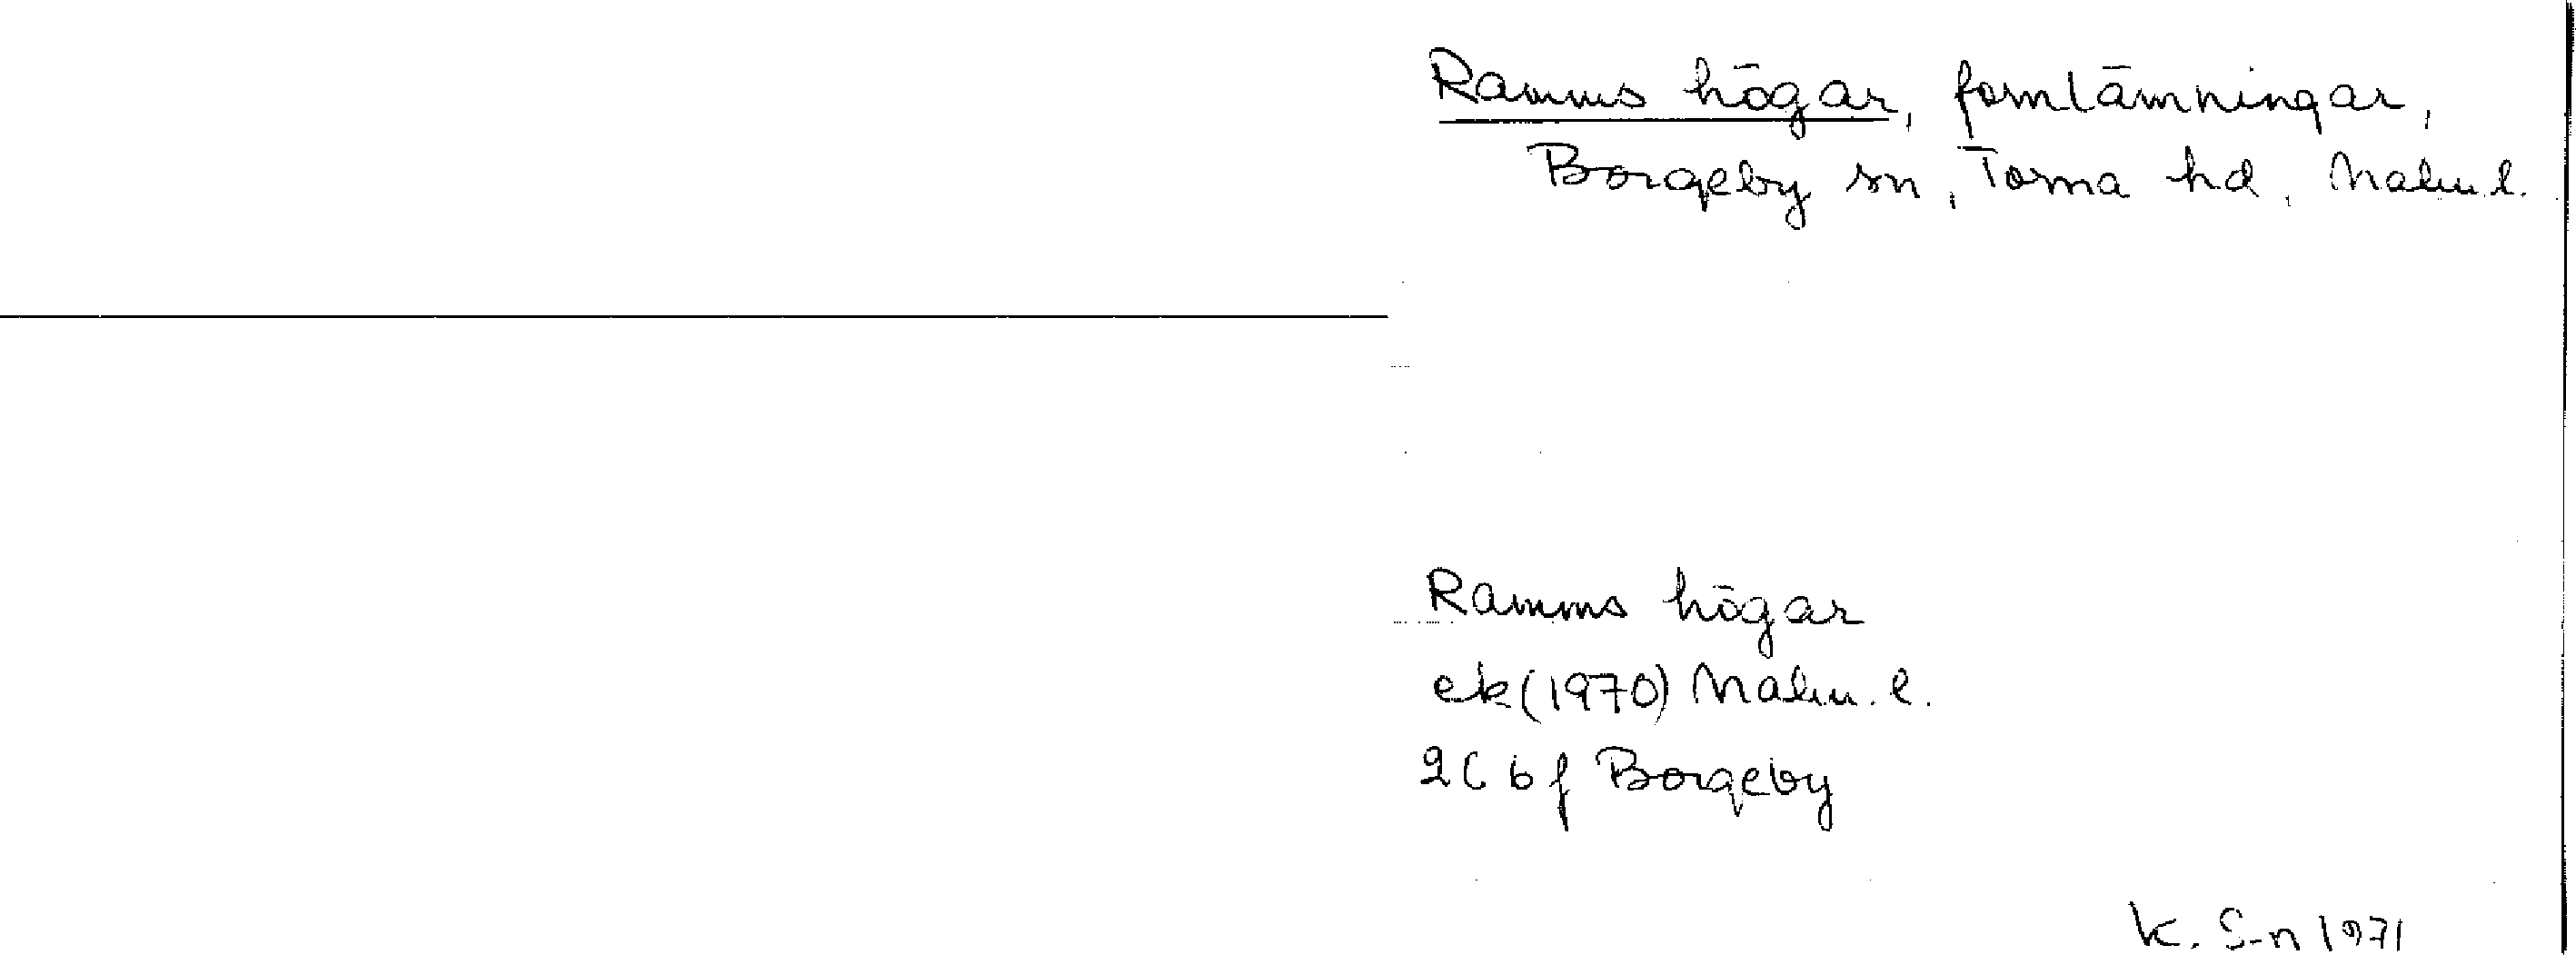 Ramms högar, fornlämningar,
Borgeby sn, Torna hd, Malm. l.
Ramms högar
ek (1970) Malm. l.
2C bf Borgeby
K. S-n 1971